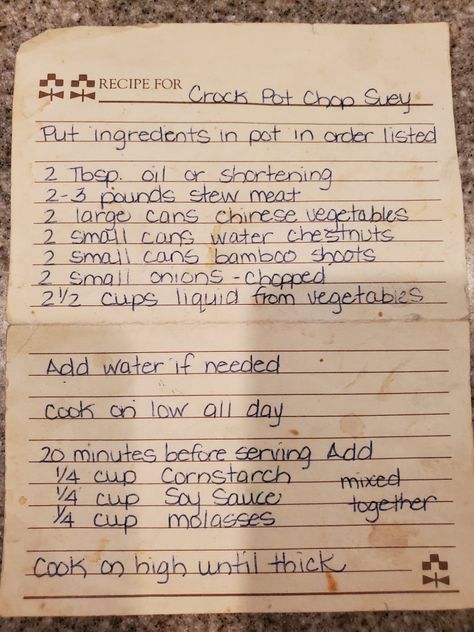 RECIPE FOR Crock Pot Chop Suey
Put ingredients in pot in order listed
2 Tbsp. oil or shortening
2-3 pounds stew meat
2 large cans chinese vegetables
2 small cans water chestnuts
2 small cans bamboo shoots
2 small onions - chopped
2 1/2 cups liquid from vegetables
Add water if needed
Cook on low all day
20 minutes before serving Add
1/4 cup Cornstarch
1/4 cup Soy Sauce
1/4 cup molasses
mixed
together
Cook on high until thick